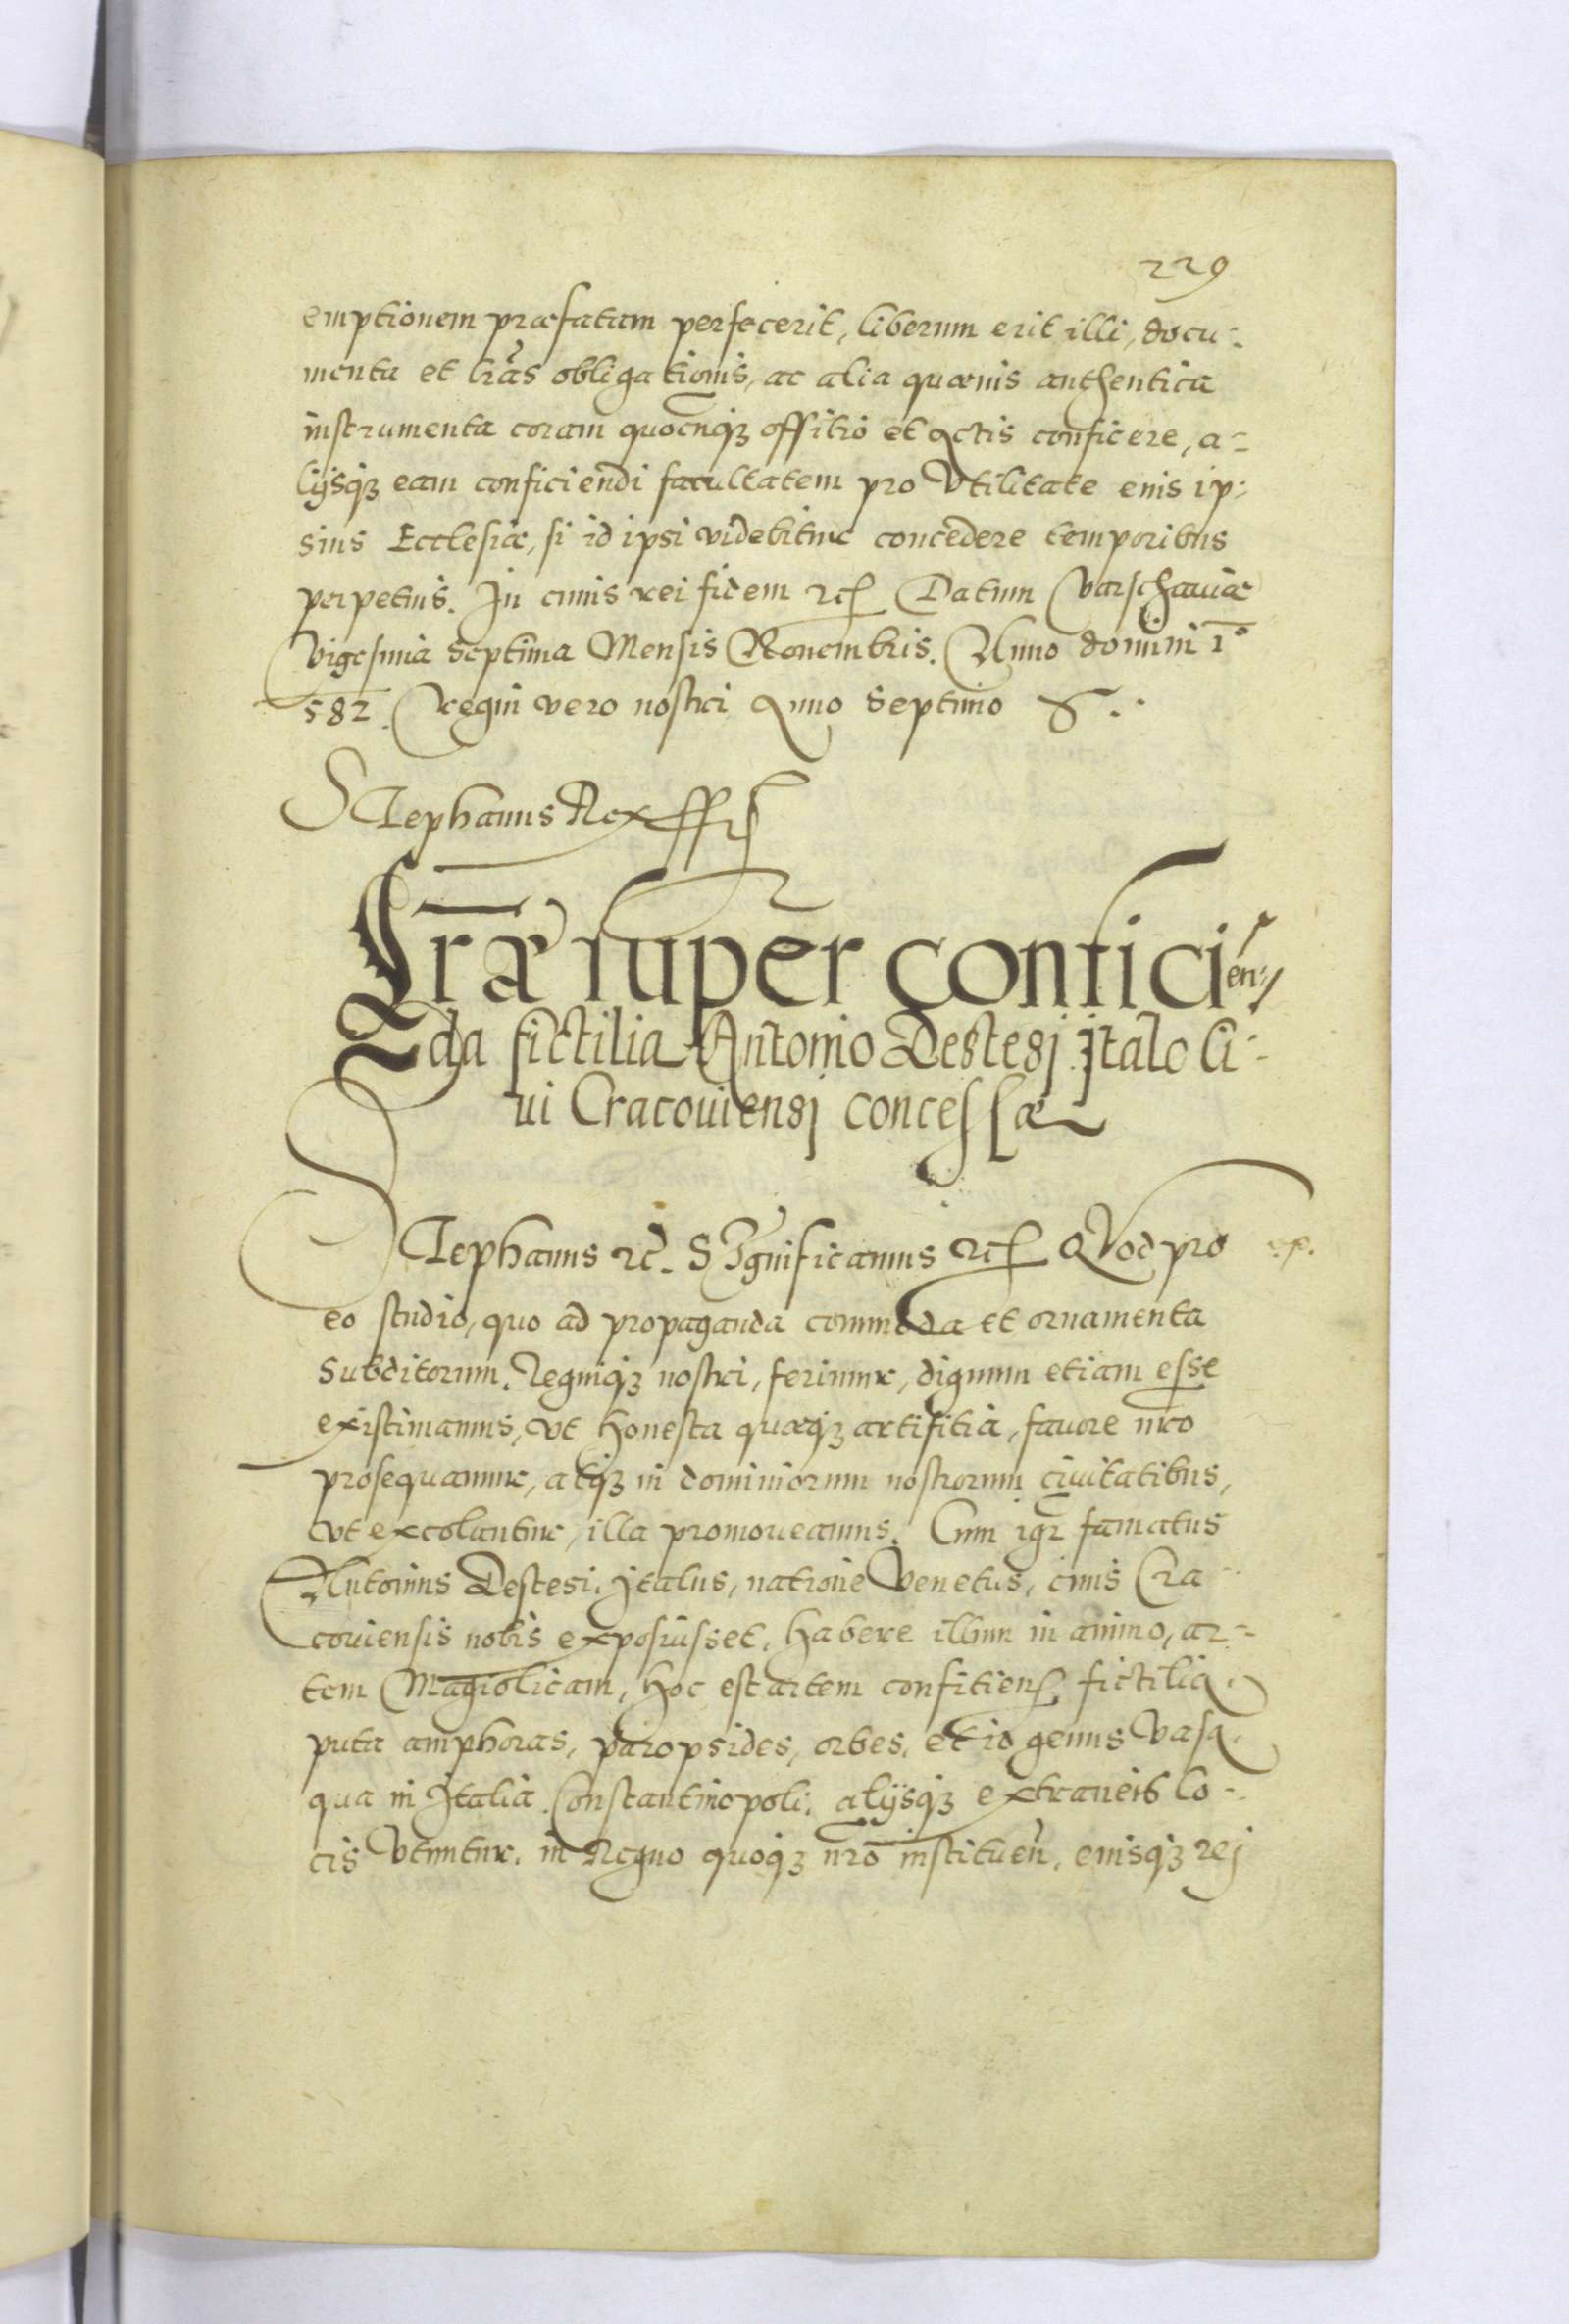 229
emptionem præfatam perfecerit, liberum erit illi, docu-
menta et lras obligationis, ac alia quævis authentica
instrumenta coram quocunq̃ offitio et actis conficere, a-
lijsq̃ eam conficiendi facultatem pro Vtilitate eius ip-
sius Ecclesiæ, si id ipsi videbitur concedere temporibus
perpetuis. In cuius rei fidem etc. Datum Varschaviæ
Vigesima Septima Mensis Novembris. Anno domini 1°
582. Regni vero nostri Anno Septimo
Stephanus Rex sst
Lræ super confici en-
da fictilia Antonio Destesj Jtalo Ci-
vi Cracouiensj concessæ
Stephanus etc. Significamus etc. Quod pro
eo studio, quo ad propaganda commoda et ornamenta
Subditorum, Regniq̃ nostri, ferimur, dignum etiam esse
existimamus, vt honesta quæq̃ artifitia, favore nro
prosequamur, atq̃ in dominiorum nostrorum civitatibus,
vt excolantur, illa promoveamus. Cum igr famatus
Antonius Destesi, Jtalus, natione Venetus, civis Cra-
coviensis nobis exposuisset, habere illum in animo, ar-
tem Magiolicam, hoc est artem confitien fictilia,
puta amphoras, paropsides, orbes, et id genus Vasa,
qua in Jtalia, Constantinopoli, alijsq̃ extraneis lo-
cis Vtuntur, in Regno quoq̃ nro instituen, eiusq̃ rej